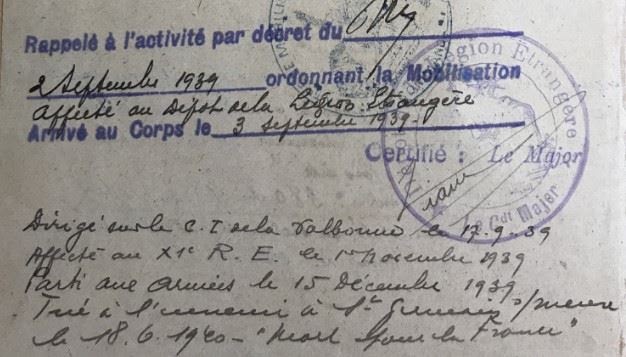 Rappelé à l'activité par décret du
2 Septembre 1939 ordonnant la Mobilisation
Affecté au Dépôt de la Légion Etrangère
Arrivé au Corps le 3 septembre 1939-
Certifié : Le Major
Légion Etrangère
Le Cdt Major
Dirigé sur le C.I de la Valbonne le 17.9.39
Affecté au XIe R.E. le 1er novembre 1939
Parti aux armées le 15 Décembre 1939
Tué à l'ennemi à St Germain s/meuse
le 18.6.1940 - "Mort pour la France"